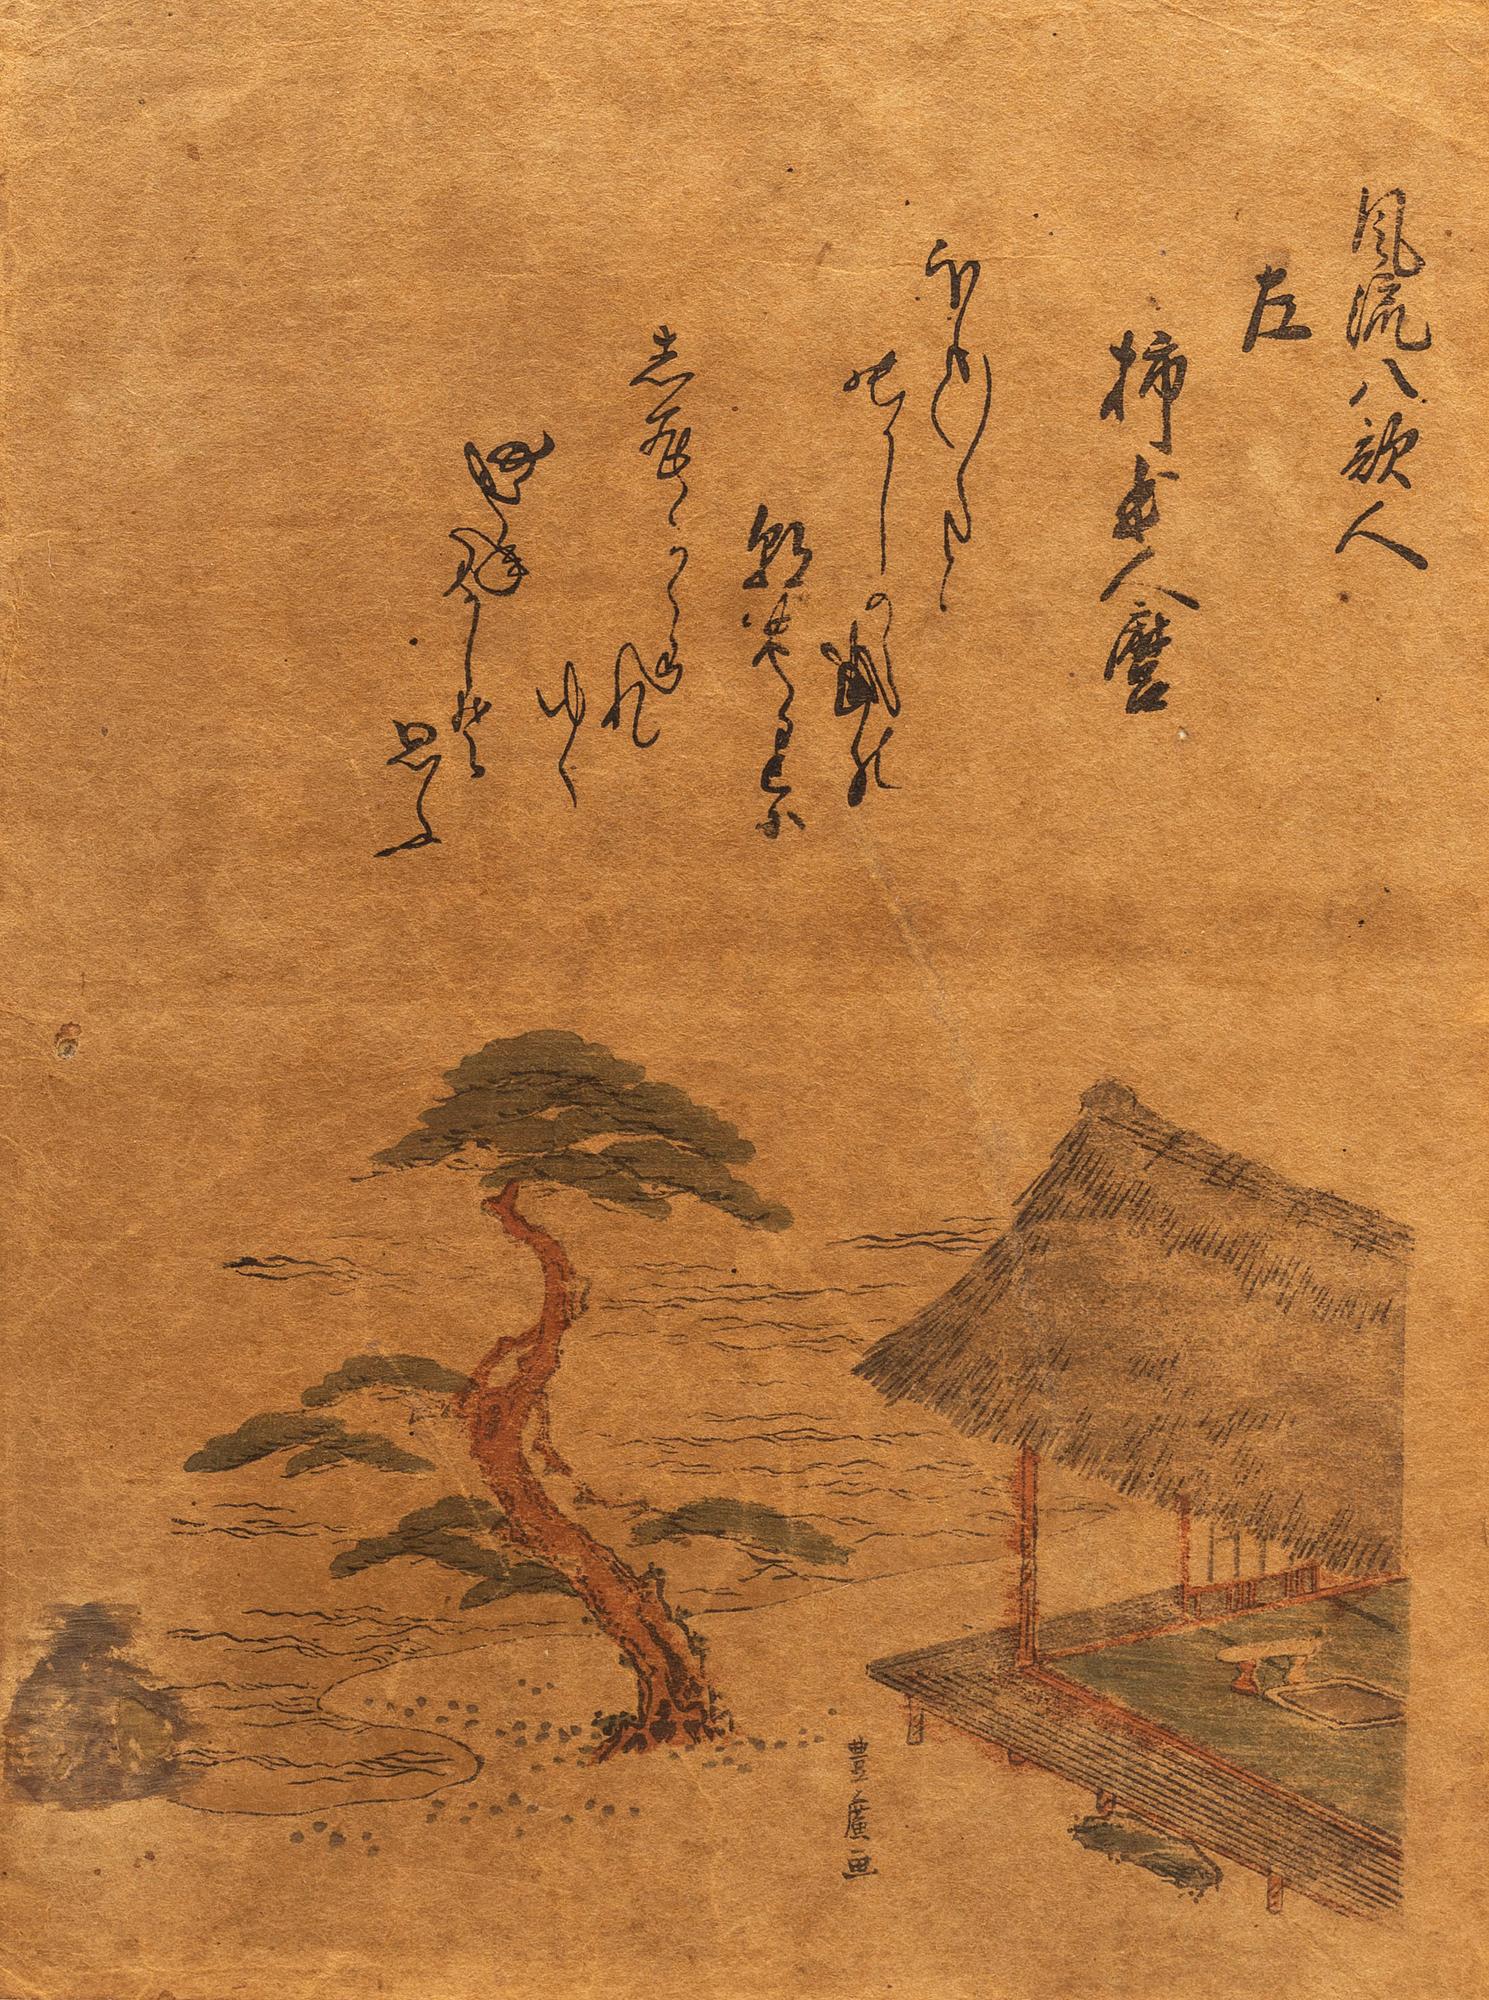 風流八歌人
左
柿本人麿
ほの〱と
あかしの浦の
朝きりに
志まかくれ
ゆく
舟をしそ
思ふ
豊廣画